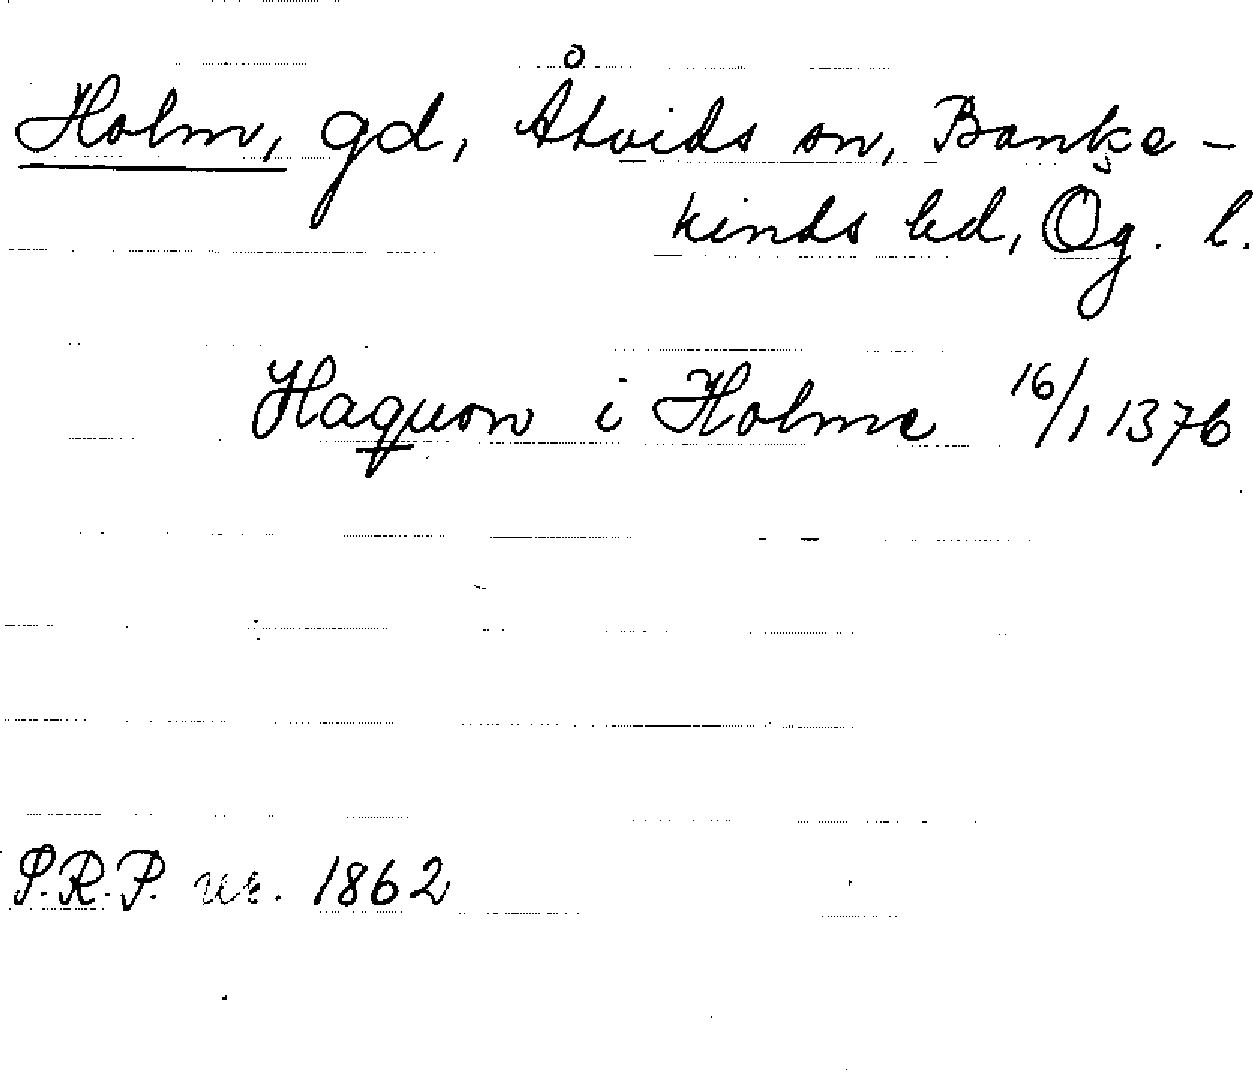 Holm, gd, Åtvids sn, Banke-
kinds hd, Ög. l.
Haquon i Holme 16/1 1376
P.R.P. nr. 1862